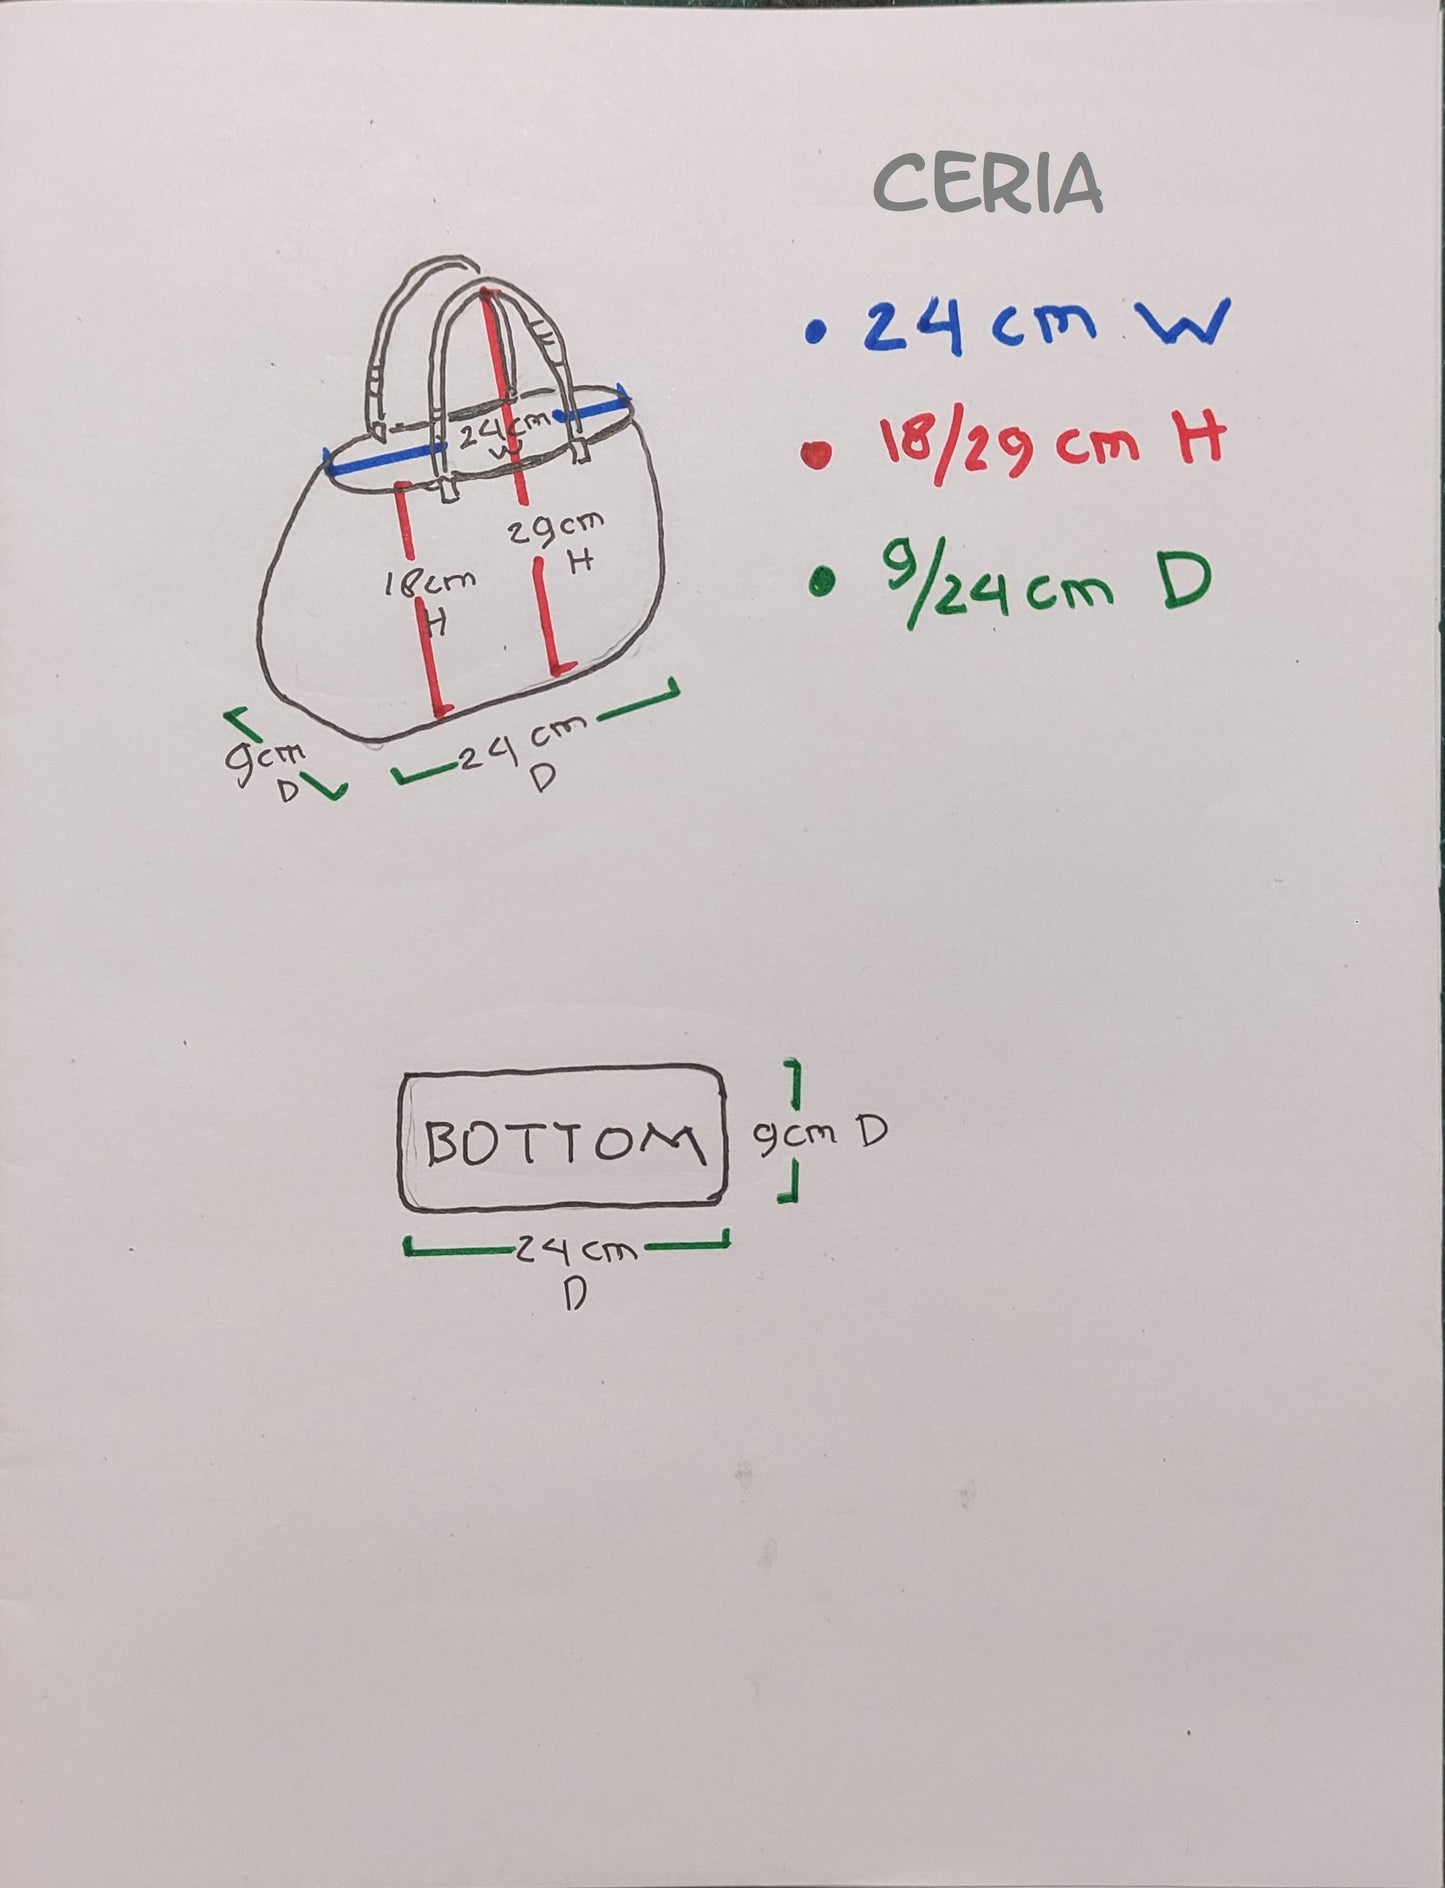 CERIA
• 24 cm W
• 18/29 cm H
• 9/24 cm D
24cm
W
29cm
H
18cm
H
9cm
D
24 cm
D
BOTTOM
9cm D
24 cm
D